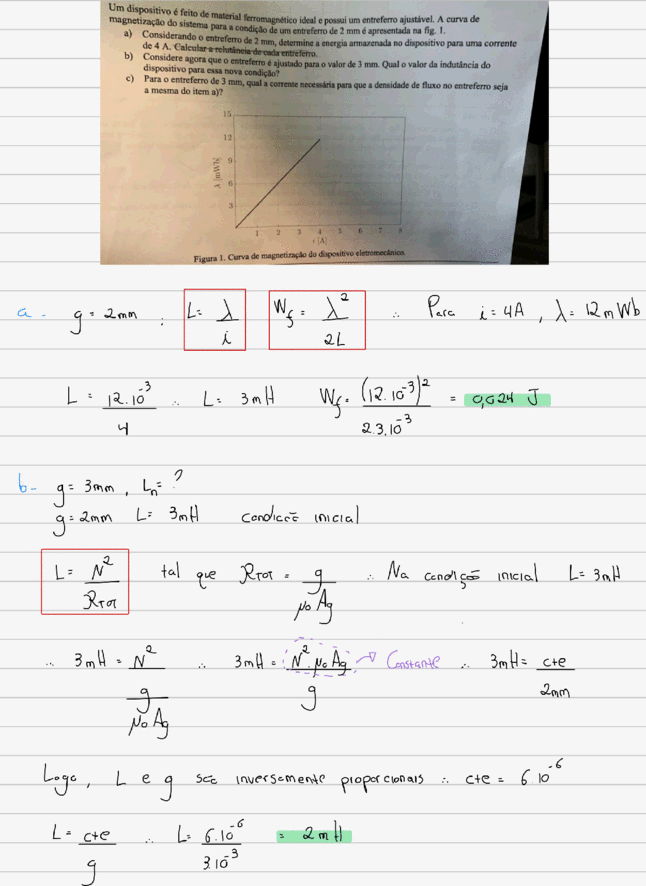 Um dispositivo é feito de material ferromagnético ideal e possui um entreferro ajustável. A curva de
magnetização do sistema para a condição de um entreferro de 2 mm é apresentada na fig. 1.
a) Considerando o entreferro de 2 mm, determine a energia armazenada no dispositivo para uma corrente
de 4 A. Calcular a relutância de cada entreferro.
b) Considere agora que o entreferro é ajustado para o valor de 3 mm. Qual o valor da indutância do
dispositivo para essa nova condição?
c) Para o entreferro de 3 mm, qual a corrente necessária para que a densidade de fluxo no entreferro seja
a mesma do item a)?
15
12
9
6
3
λ [mWb]
1 2 3 4 5 6 7 8
i [A]
Figura 1. Curva de magnetização do dispositivo eletromecânico.
a - g = 2mm : L = λ/i Wf = λ²/2L ∴ Para i = 4A , λ = 12 mWb
L = 12.10⁻³/4 ∴ L = 3mH Wf = (12.10⁻³)²/2.3.10⁻³ = 0,024 J
b - g = 3mm , Ln = ?
g = 2mm L = 3mH condição inicial
L = N²/RTOT tal que RTOT = g/μo Ag ∴ Na condição inicial L = 3mH
∴ 3mH = N²/(g/μo Ag) ∴ 3mH = N² μo Ag/g → Constante ∴ 3mH = cte/2mm
Logo, L e g são inversamente proporcionais ∴ cte = 6.10⁻⁶
L = cte/g ∴ L = 6.10⁻⁶/3.10⁻³ = 2mH